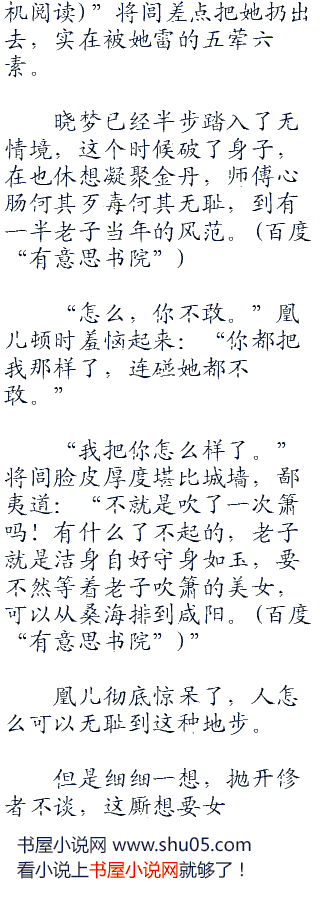 机阅读)”将闾差点把她扔出
去，实在被她雷的五荤六
素。
晓梦已经半步踏入了无
情境，这个时候破了身子，
在也休想凝聚金丹，师傅心
肠何其歹毒何其无耻，到有
一半老子当年的风范。(百度
“有意思书院”)
“怎么，你不敢。”凰
儿顿时羞恼起来：“你都把
我那样了，连碰她都不
敢。”
“我把你怎么样了。”
将闾脸皮厚度堪比城墙，鄙
夷道：“不就是吹了一次箫
吗！有什么了不起的，老子
就是洁身自好守身如玉，要
不然等着老子吹箫的美女，
可以从桑海排到咸阳。(百度
“有意思书院”)”
凰儿彻底惊呆了，人怎
么可以无耻到这种地步。
但是细细一想，抛开修
者不谈，这厮想要女
书屋小说网 www.shu05.com
看小说上书屋小说网就够了！